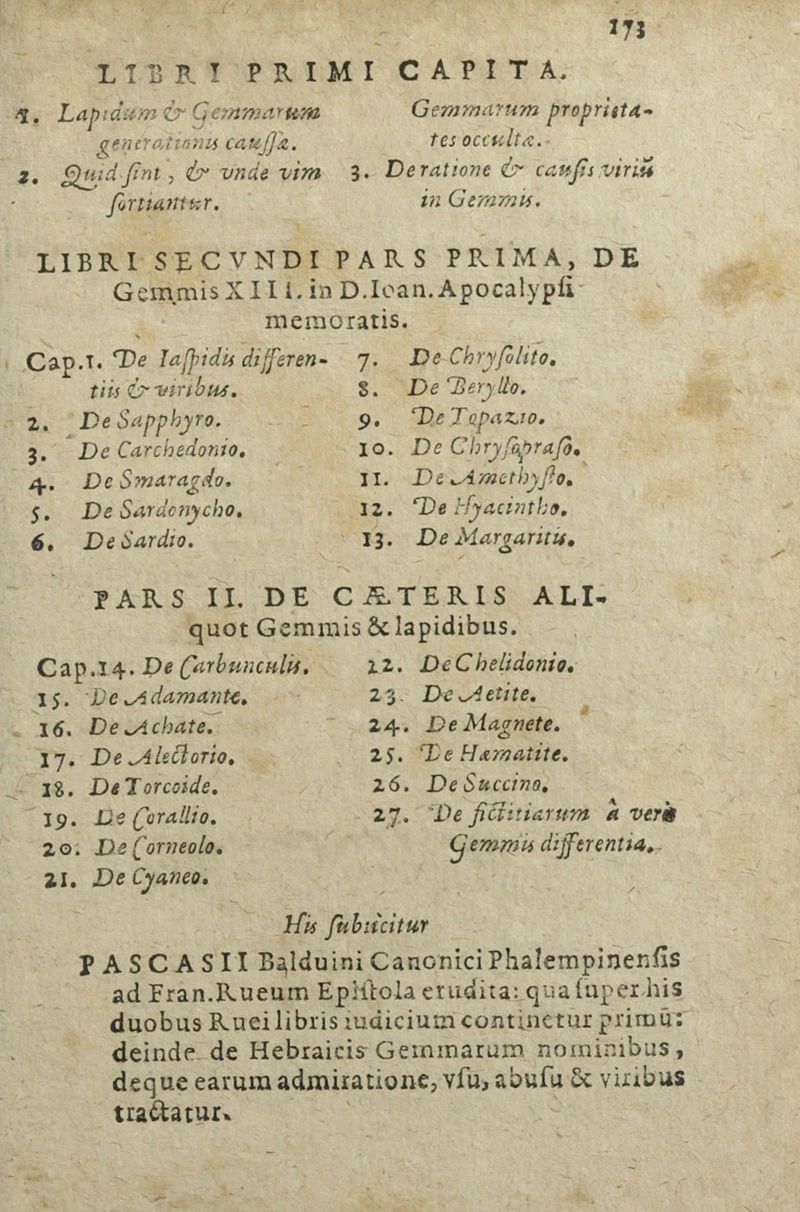 173
LIBRI PRIMI CAPITA.
1. Lapidum & Gemmarum
generationis cauſſæ.
2. Quid ſint, & vnde vim
ſortiantur.
Gemmarum proprieta-
tes occultæ.
3. De ratione & cauſis viriū
in Gemmis.
LIBRI SECVNDI PARS PRIMA, DE
Gemmis XIII. in D.Ioan.Apocalypſi
memoratis.
Cap.1. De Iaſpidis differen-
tiis & viribus.
2. De Sapphyro.
3. De Carchedonio.
4. De Smaragdo.
5. De Sardonycho.
6. De Sardio.
7. De Chryſolito.
8. De Beryllo.
9. De Topazio.
10. De Chryſopraſo.
11. De Amethyſto.
12. De Hyacintho.
13. De Margaritis.
PARS II. DE CÆTERIS ALI-
quot Gemmis & lapidibus.
Cap.14. De Carbunculis.
15. De Adamante.
16. De Achate.
17. De Alectorio.
18. De Torcoide.
19. De Corallio.
20. De Corneolo.
21. De Cyaneo.
22. De Chelidonio.
23. De Aetite.
24. De Magnete.
25. De Hæmatite.
26. De Succino.
27. De fictitiarum à veris
Gemmis differentia.
His ſubiicitur
PASCASII Balduini Canonici Phalempinenſis
ad Fran.Rueum Epiſtola erudita: qua ſuper his
duobus Ruei libris iudicium continetur primū:
deinde de Hebraicis Gemmarum nominibus,
deque earum admiratione, vſu, abuſu & viribus
tractatur.